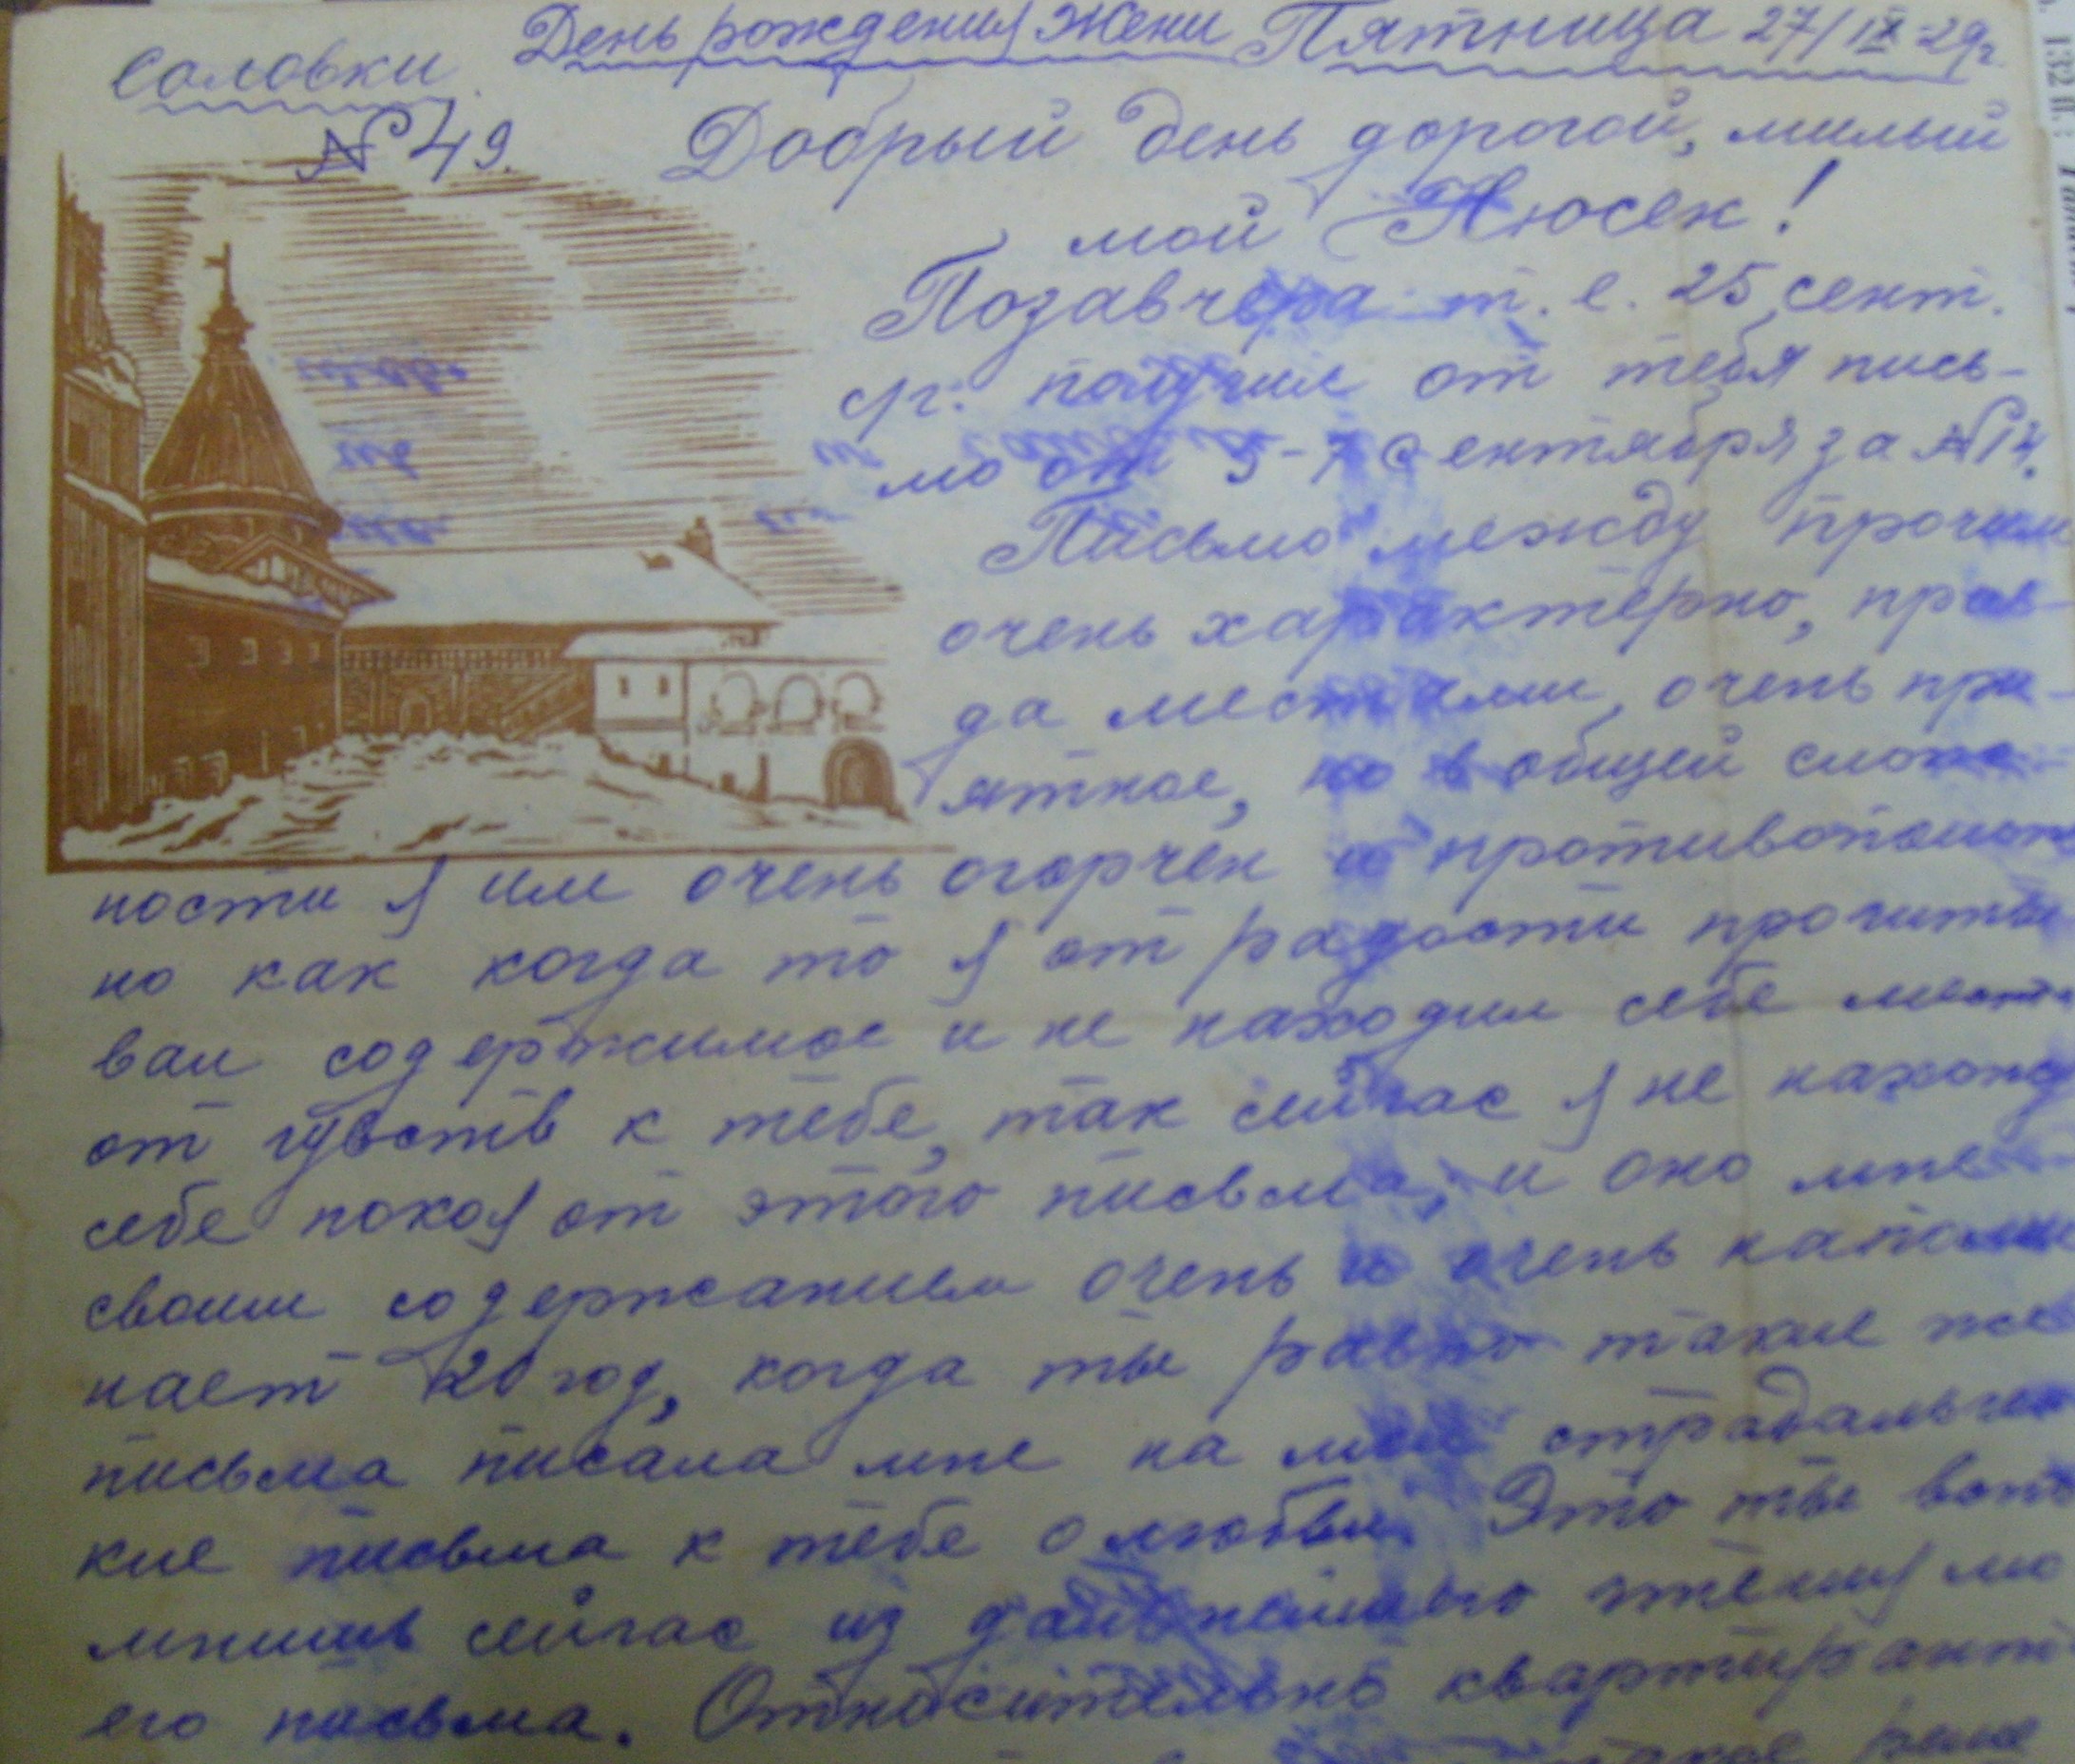 День рождения Жени Пятница 27/IX-29г.
Соловки
№ 49.
Добрый день дорогой, милый
мой Нюсек!
Позавчера т. е. 25 сент.
с/г. получил от тебя пись-
мо от 5-7 сентября за №12.
Письмо между прочим
очень характерно, прав-
да местами, очень при-
ятное, но в общей слож-
ности я им очень огорчен и противополож
но как когда то я от радости прочиты
вал содержимое и не находил себе места
от чувств к тебе, так сейчас я не нахожу
себе покоя от этого письма, и оно мне
своим содержанием очень и очень напоми
нает 20 год, когда ты равно такие же
письма писала мне на мои страдальчес
кие письма к тебе о любви. Это ты вспо
мнишь сейчас из дальнейшего чтения мо
его письма. Относительно квартирант